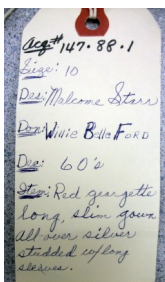 Acq# 147.88.1
Size: 10
Des: Malcome Starr
Don: Willie Belle Ford
Dec: 60's
Item: Red georgette
long, slim gown
all over silver
studded w/long
sleeves.